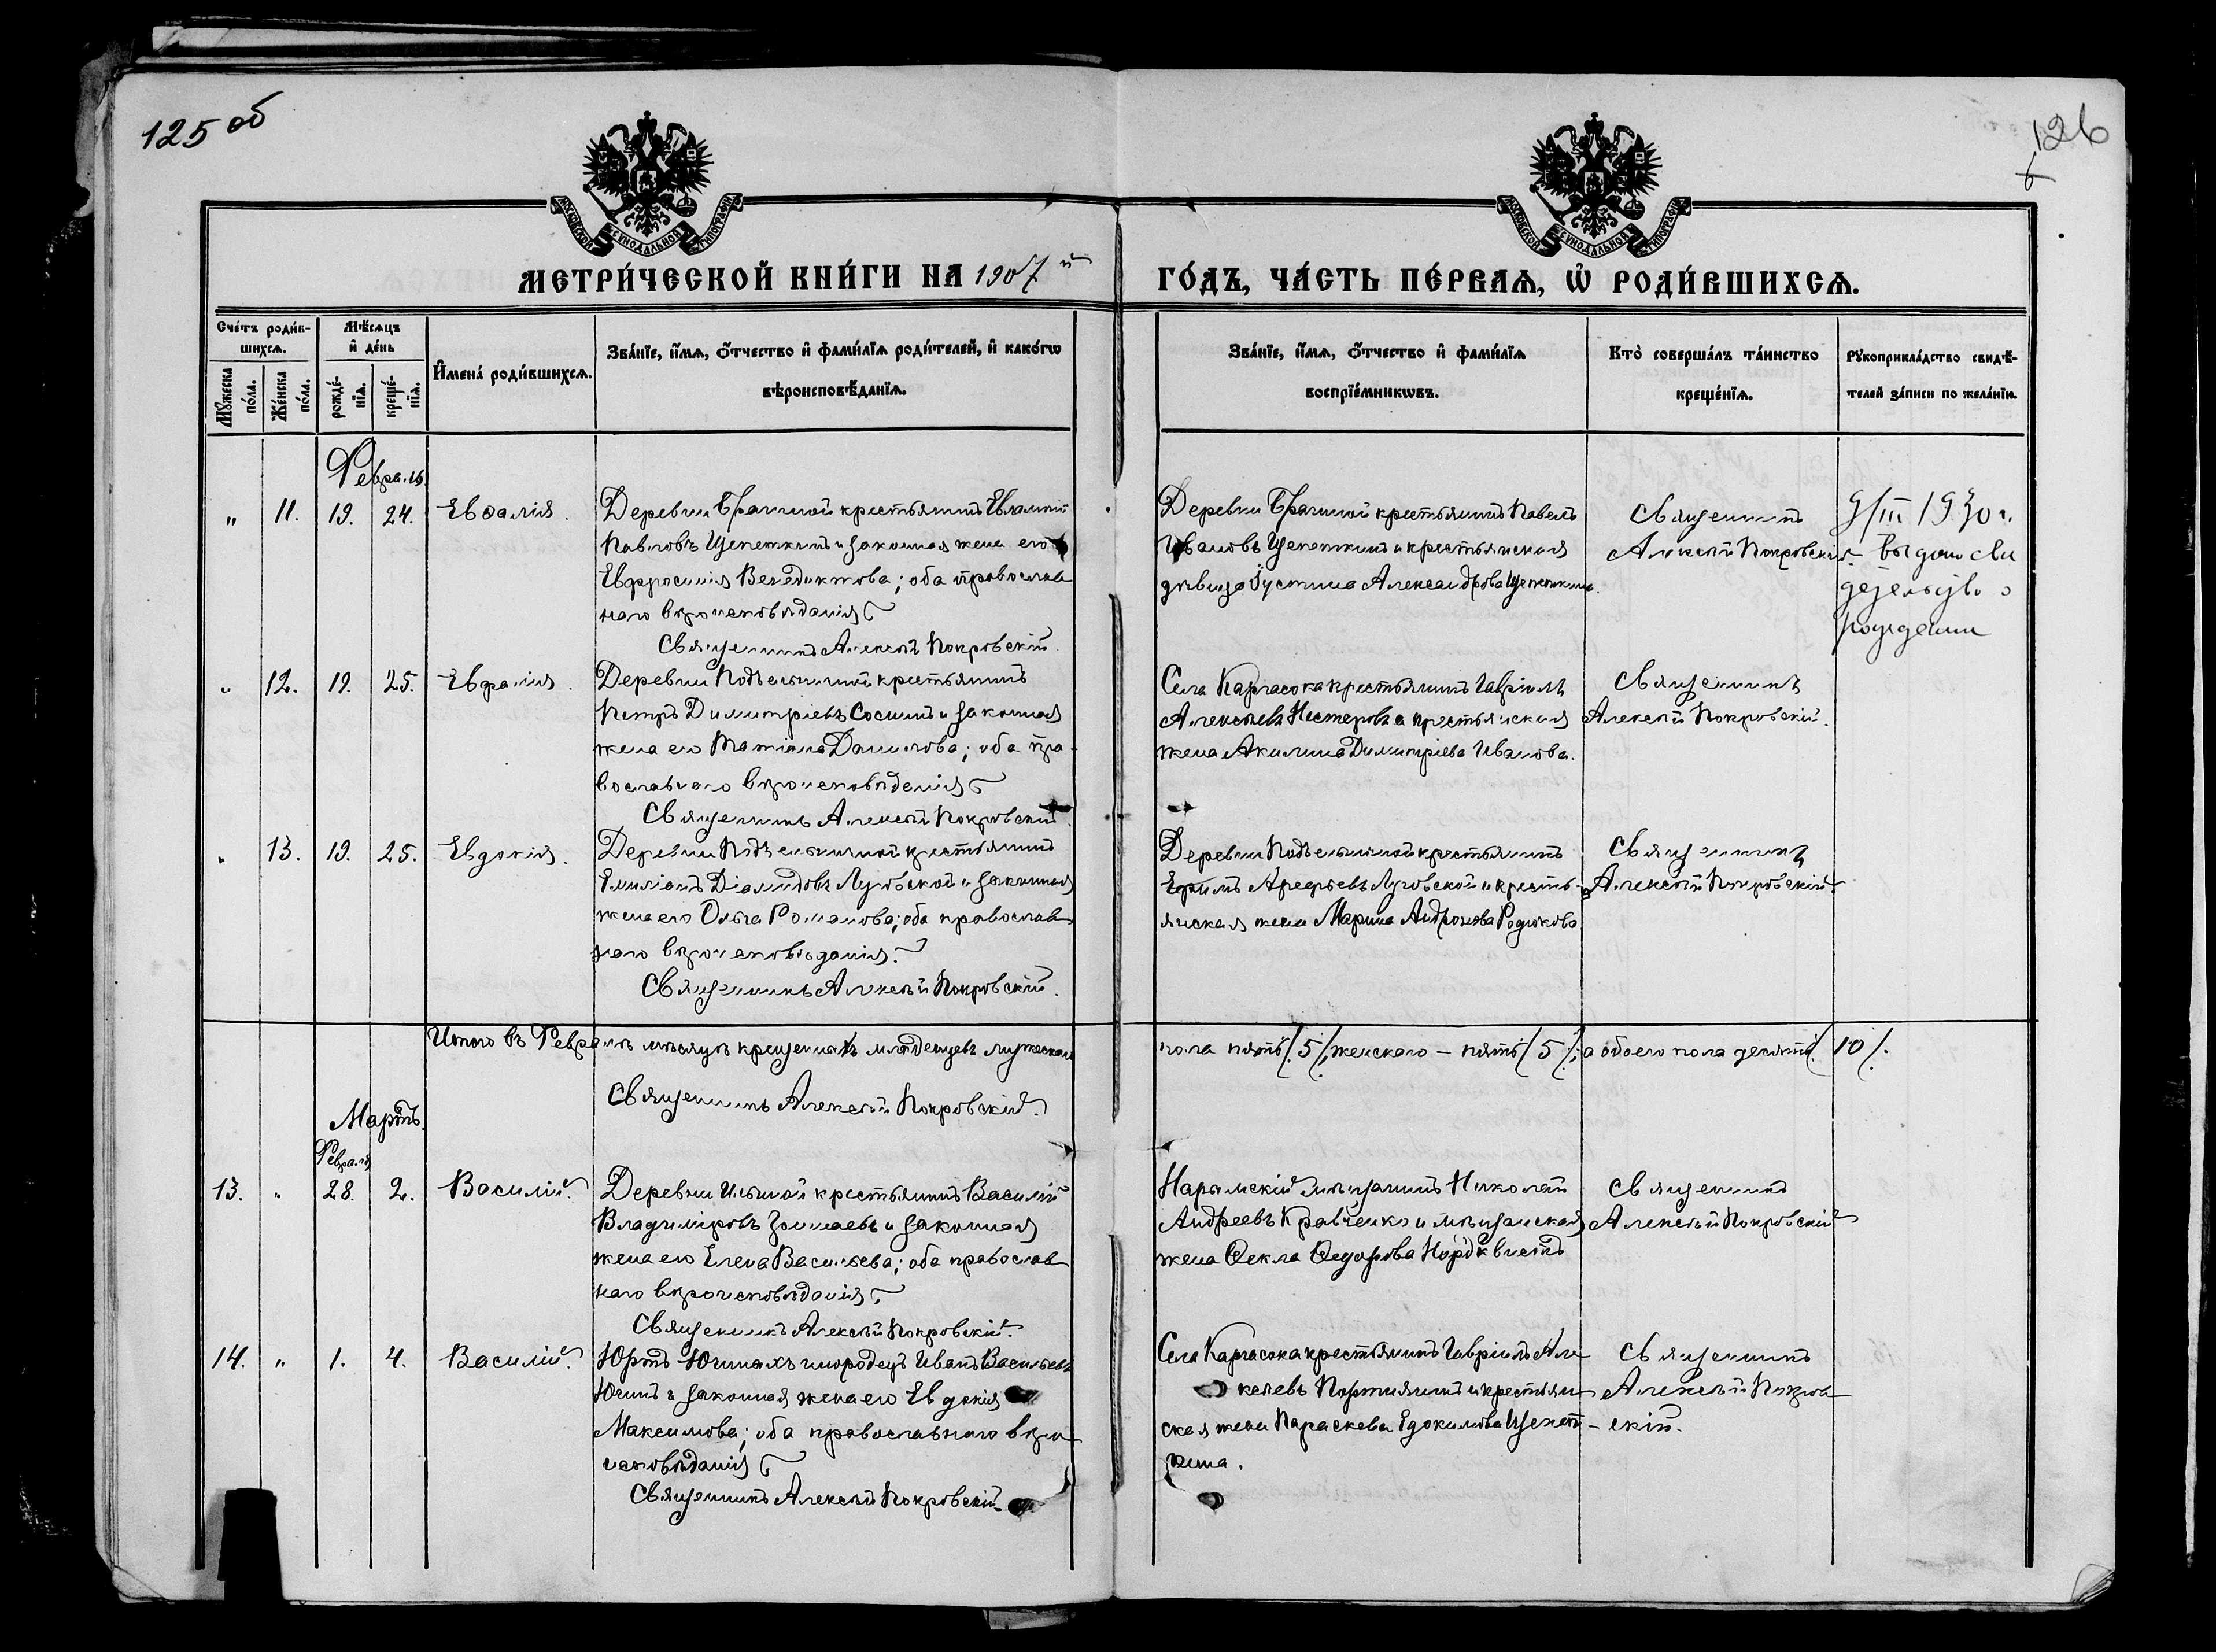 125 об
126
МОСКОВСКОЙ СѴНОДАЛЬНОЙ ТИПОГРАФІИ
МОСКОВСКОЙ СѴНОДАЛЬНОЙ ТИПОГРАФІИ
МЕТРИ́ЧЕСКОЙ КНИ́ГИ НА 1907й
ГО́ДЪ, ЧА́СТЬ ПЕ́РВАѦ, Ѽ РОДИ́ВШИХСѦ.
Сче́тъ роди́в-
шихсѧ.
Мꙋ́жеска
по́ла.
Же́нска
по́ла.
Мѣ́сѧцъ
и҆ де́нь
рожде́-
нїѧ.
креще́-
нїѧ.
И҆мена̀ роди́вшихсѧ.
Зва́нїе, и҆́мѧ, ѻ҆́тчество и҆ фами́лїѧ роди́телей, и҆ како́гѡ
вѣроисповѣ́данїѧ.
Зва́нїе, и҆́мѧ, ѻ҆́тчество и҆ фами́лїѧ
воспрїе́мникѡвъ.
Кто̀ соверша́лъ та́инство
креще́нїѧ.
Рꙋкоприкла́дство свидѣ́-
телей за́писи по жела́нїю.
Февраль
" 11. 19. 24. Евѳалія.
Деревни Брагиной крестьянинъ Евлампій
Павловъ Щепеткинъ и законная жена его
Евфросинія Венедиктова; оба православ
наго вѣроисповѣданія
Священникъ Алексѣй Покровскій
Деревни Брагиной крестьянинъ Павелъ
Ивановъ Щепеткинъ и крестьянская
дѣвица Іустина Александрова Щепеткина.
Священникъ
Алексѣй Покровскій
9/III 1930 г.
выдано сви
детельство о
рождении
" 12. 19. 25. Евфалія.
Деревни Подъельничной крестьянинъ
Петръ Димитріевъ Сосинъ и законная
жена его Татіана Данилова; оба пра-
вославнаго вѣроисповѣданія
Священникъ Алексѣй Покровскій
Села Каргасока крестьянинъ Гавріилъ
Алексѣевъ Нестеровъ и крестьянская
жена Акилина Димитріева Иванова.
Священникъ
Алексѣй Покровскій.
" 13. 19. 25. Евдокія.
Деревни Подъельничной крестьянинъ
Емиліанъ Діомидовъ Луговской и законная
жена его Ольга Романова; оба православ
наго вѣроисповѣданія.
Священникъ Алексѣй Покровскій.
Деревни Подъельничной крестьянинъ
Ефимъ Арефьевъ Луговской и кресть-
янская жена Марина Андронова Родюкова
Священникъ
Алексѣй Покровскій
Итого въ Февралѣ мѣсяцѣ крещенныхъ младенцевъ мужескаго
пола пять /5/, женскаго – пять /5/; а обоего пола десять /10/.
Священникъ Алексѣй Покровскій.
Мартъ.
Февраля
13. " 28. 2. Василій.
Деревни Ильиной крестьянинъ Василій
Владиміровъ и законная
жена его Елена Васильева; оба православ
наго вѣроисповѣданія
Священникъ Алексѣй Покровскій.
Нарымскій мѣщанинъ Николай
Андреевъ Кравченко и мѣщанская
жена Ѳекла Ѳедорова Нордквистъ
Священникъ
Алексѣй Покровскій
14. " 1. 4. Василій.
Юртъ Югиныхъ инородецъ Иванъ Васильевъ
Югинъ и законная жена его Евдокія
Максимова; оба православнаго вѣро
исповѣданія
Священникъ Алексѣй Покровскій.
Села Каргасока крестьянинъ Гавріилъ Але
ксѣевъ Портнягинъ и крестьян
ская жена Параскева Едокимова Щепет-
кина.
Священникъ
Алексѣй Покров
скій.